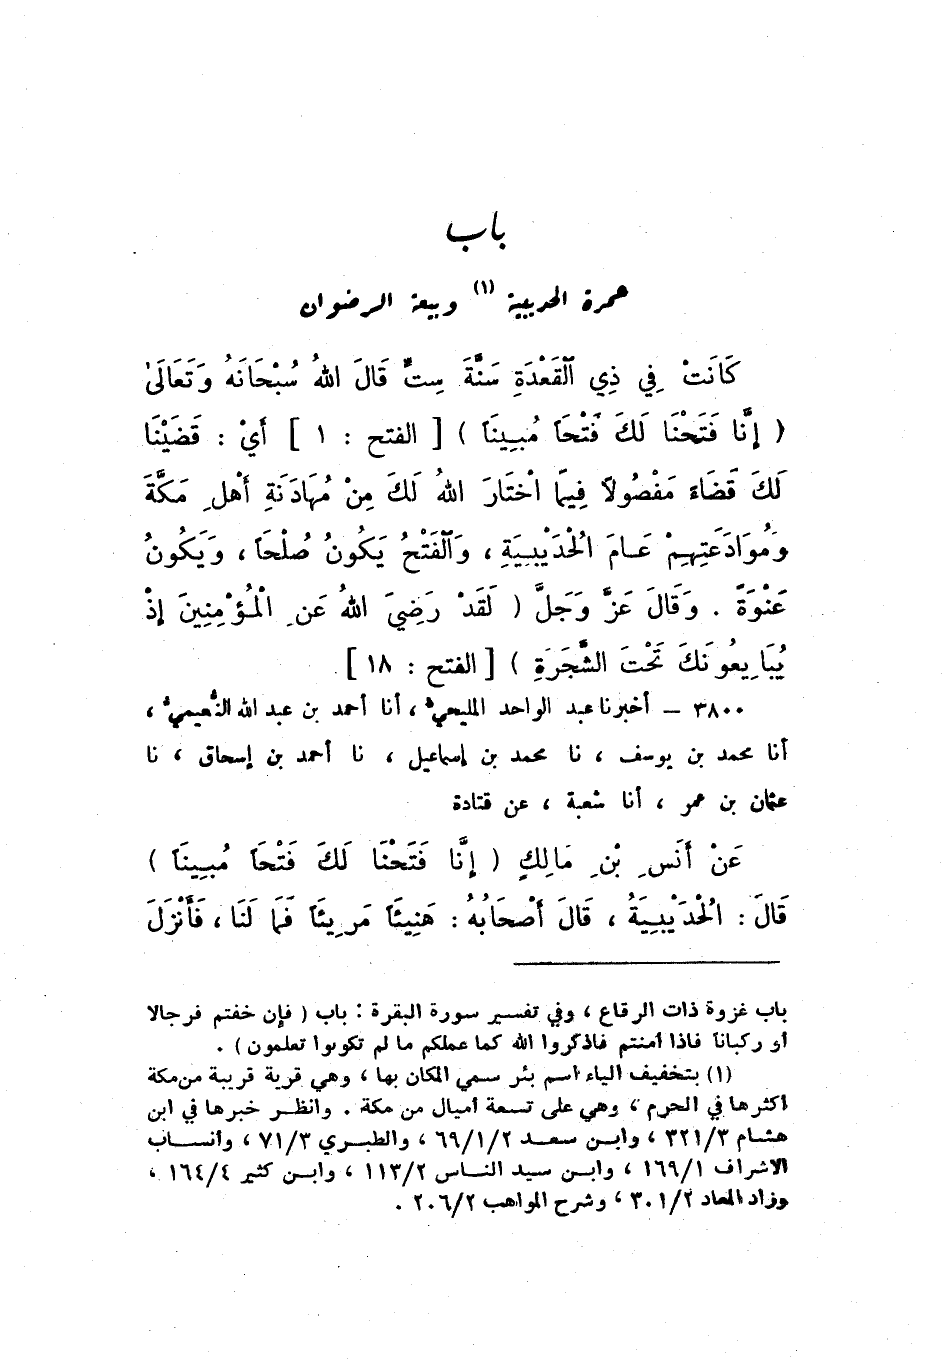 باب
عمرة الحديبية (١) وبيعة الرضوان
كَانَتْ فِي ذِي ٱلْقَعْدَةِ سَنَةَ سِتٍّ قَالَ اللهُ سُبْحَانَهُ وَتَعَالَىٰ
( إِنَّا فَتَحْنَا لَكَ فَتْحَاً مُبِينَاً ) [ الفتح : ١ ] أَيْ : قَضَيْنَا
لَكَ قَضَاءً مَفْصُولاً فِيمَا اخْتَارَ اللهُ لَكَ مِنْ مُهَادَنَةِ أَهْلِ مَكَّةَ
وَمُوَادَعَتِهِمْ عَامَ الْحُدَيْبِيَةِ ، وَٱلْفَتْحُ يَكُونُ صُلْحَاً ، وَيَكُونُ
عَنْوَةً . وَقَالَ عَزَّ وَجَلَّ ( لَقَدْ رَضِيَ اللهُ عَنِ الْمُؤْمِنِينَ إِذْ
يُبَايِعُونَكَ تَحْتَ الشَّجَرَةِ ) [ الفتح : ١٨ ]
٣٨٠٠ – أخبرنا عبد الواحد المليحيُّ ، أنا أحمد بن عبد الله النُّعيميُّ ،
أنا محمد بن يوسف ، نا محمد بن إسماعيل ، نا أحمد بن إسحاق ، نا
عثمان بن عمر ، أنا شعبة ، عن قتادة
عَنْ أَنَسِ بْنِ مَالِكٍ ( إِنَّا فَتَحْنَا لَكَ فَتْحَاً مُبِينَاً )
قَالَ : الْحُدَيْبِيَةُ ، قَالَ أَصْحَابُهُ : هَنِيئَاً مَرِيئَاً فَمَا لَنَا ، فَأَنْزَلَ
باب غزوة ذات الرقاع ، وفي تفسير سورة البقرة : باب ( فإن خفتم فرجالا
أو ركبانا فاذا أمنتم فاذكروا الله كما علمكم ما لم تكونوا تعلمون ) .
(١) بتخفيف الياء اسم بئر سمي المكان بها ، وهي قرية قريبة من مكة
أكثرها في الحرم ، وهي على تسعة أميال من مكة . وانظر خبرها في ابن
هشام ٣٢١/٣ ، وابن سعد ٦٩/١/٢ ، والطبري ٧١/٣ ، وأنساب
الاشراف ١٦٩/١ ، وابن سيد الناس ١١٣/٢ ، وابن كثير ١٦٤/٤ ،
وزاد المعاد ٣٠١/٢ ، وشرح المواهب ٢٠٦/٢ .